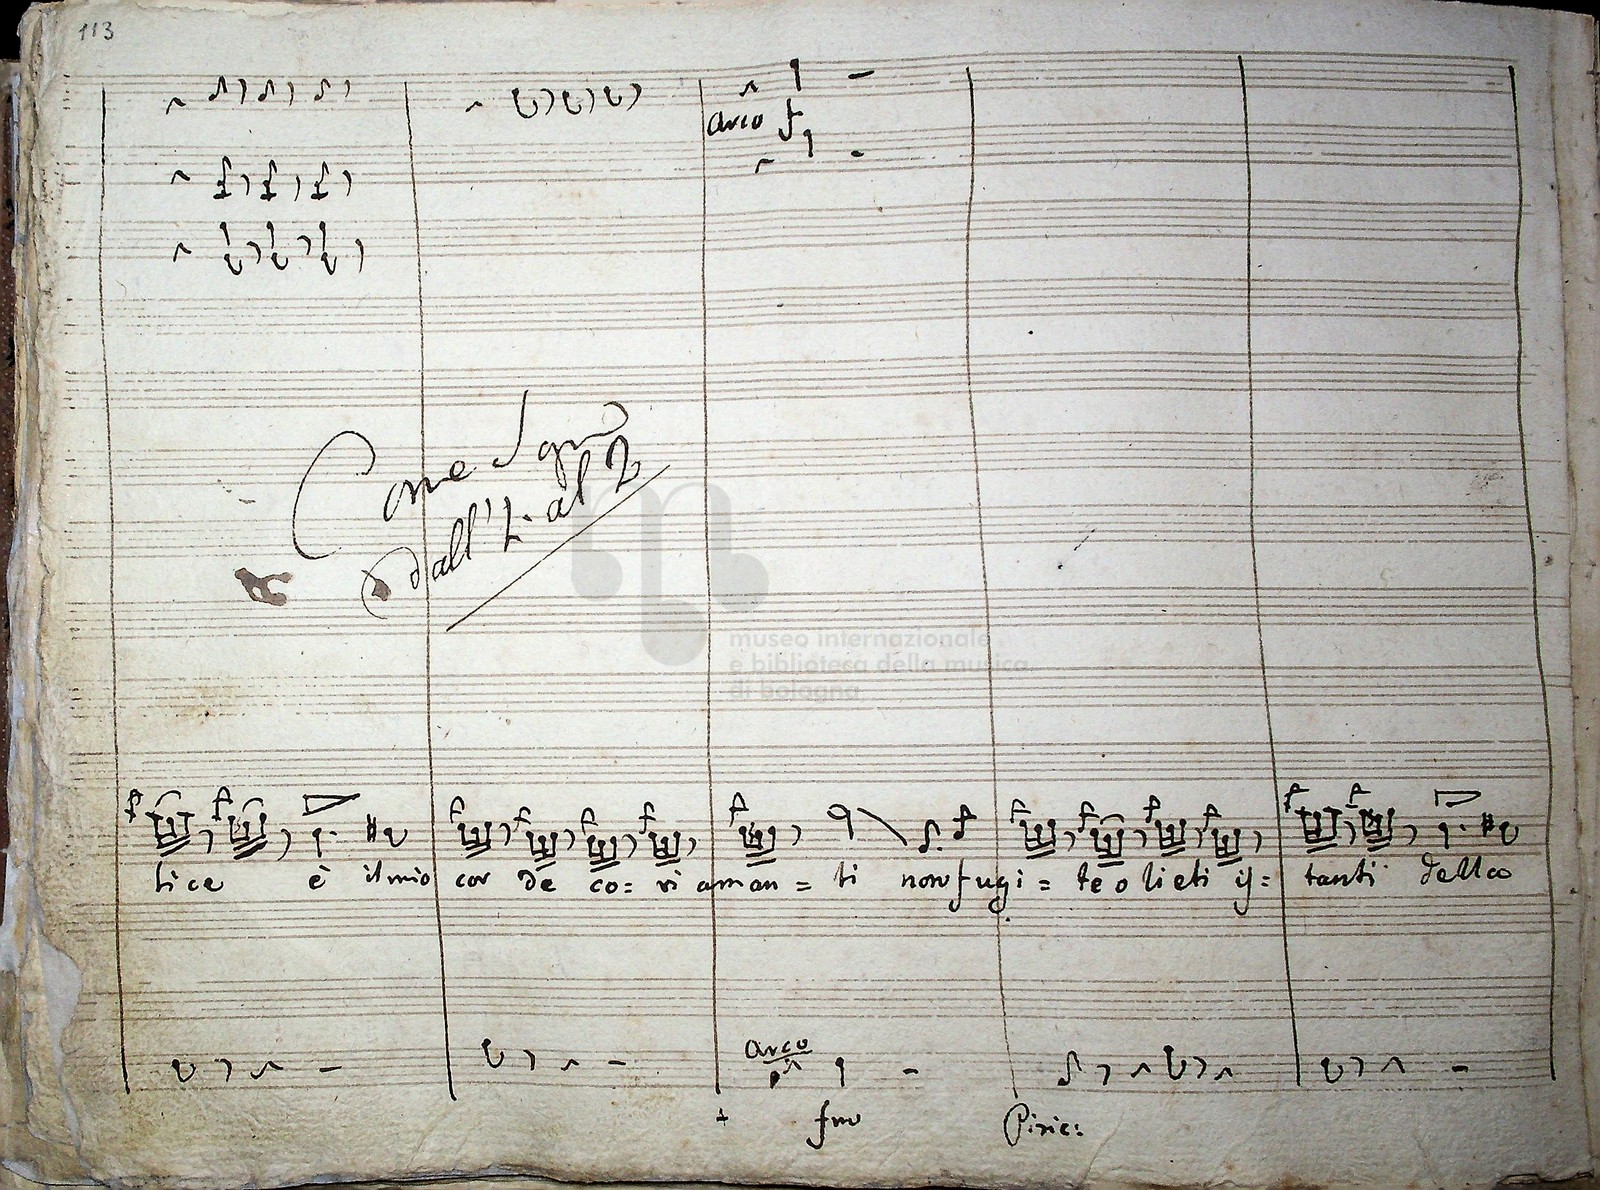 113
arco f
Come Sopra
dall' 1. al 2
museo internazionale
e biblioteca della musica
di bologna
lice è il mio cor de co= ri aman= ti non fugi= te o lieti is= tanti della
arco
fmo
Pizic: